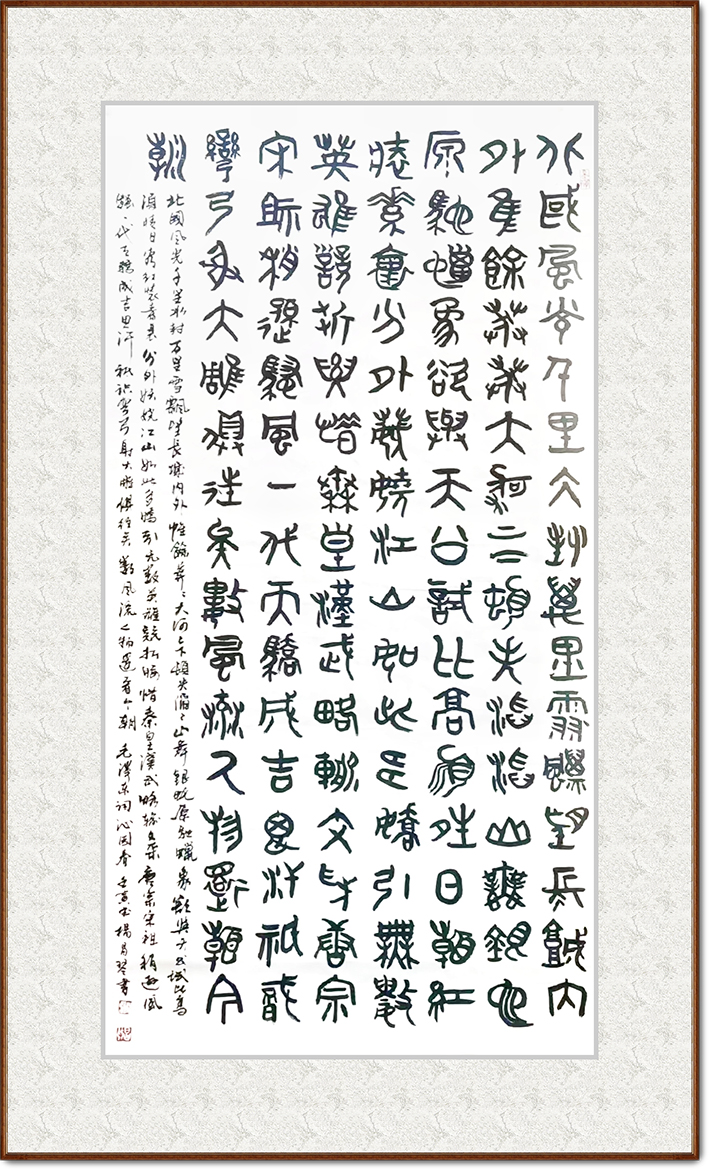 北國風光千里仌封萬里雪飄望長城内
外隹餘莽莽大河上下頓失滔滔山舞銀蛇
原馳蠟象欲與天公試比高須晴日看紅
裝素裹分外妖嬈江山如此多嬌引無數
英雄競折腰惜秦皇漢武略輸文采唐宗
宋祖稍遜騷風一代天驕成吉思汗祇識
彎弓射大雕俱往矣數風流人物還看今
朝
北國風光千里冰封万里雪飄望長城内外惟餘莽、大河上下頓失滔、山舞銀蛇原馳蠟象欲與天公試比高
須晴日看紅裝素裹分外妖嬈江山如此多嬌引无數英雄競折腰惜秦皇漢武略輸文采唐宗宋祖稍遜風
騷一代天驕成吉思汗祇識彎弓射大雕俱往矣數風流人物還看今朝 毛澤東詞沁園春 壬寅 楊 書